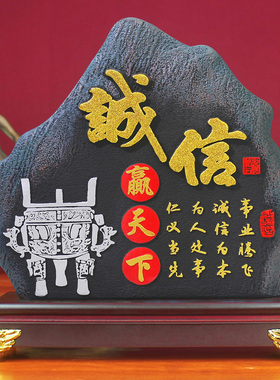 誠信
赢天下
事业腾飞
诚信为本
为人处事
仁义当先